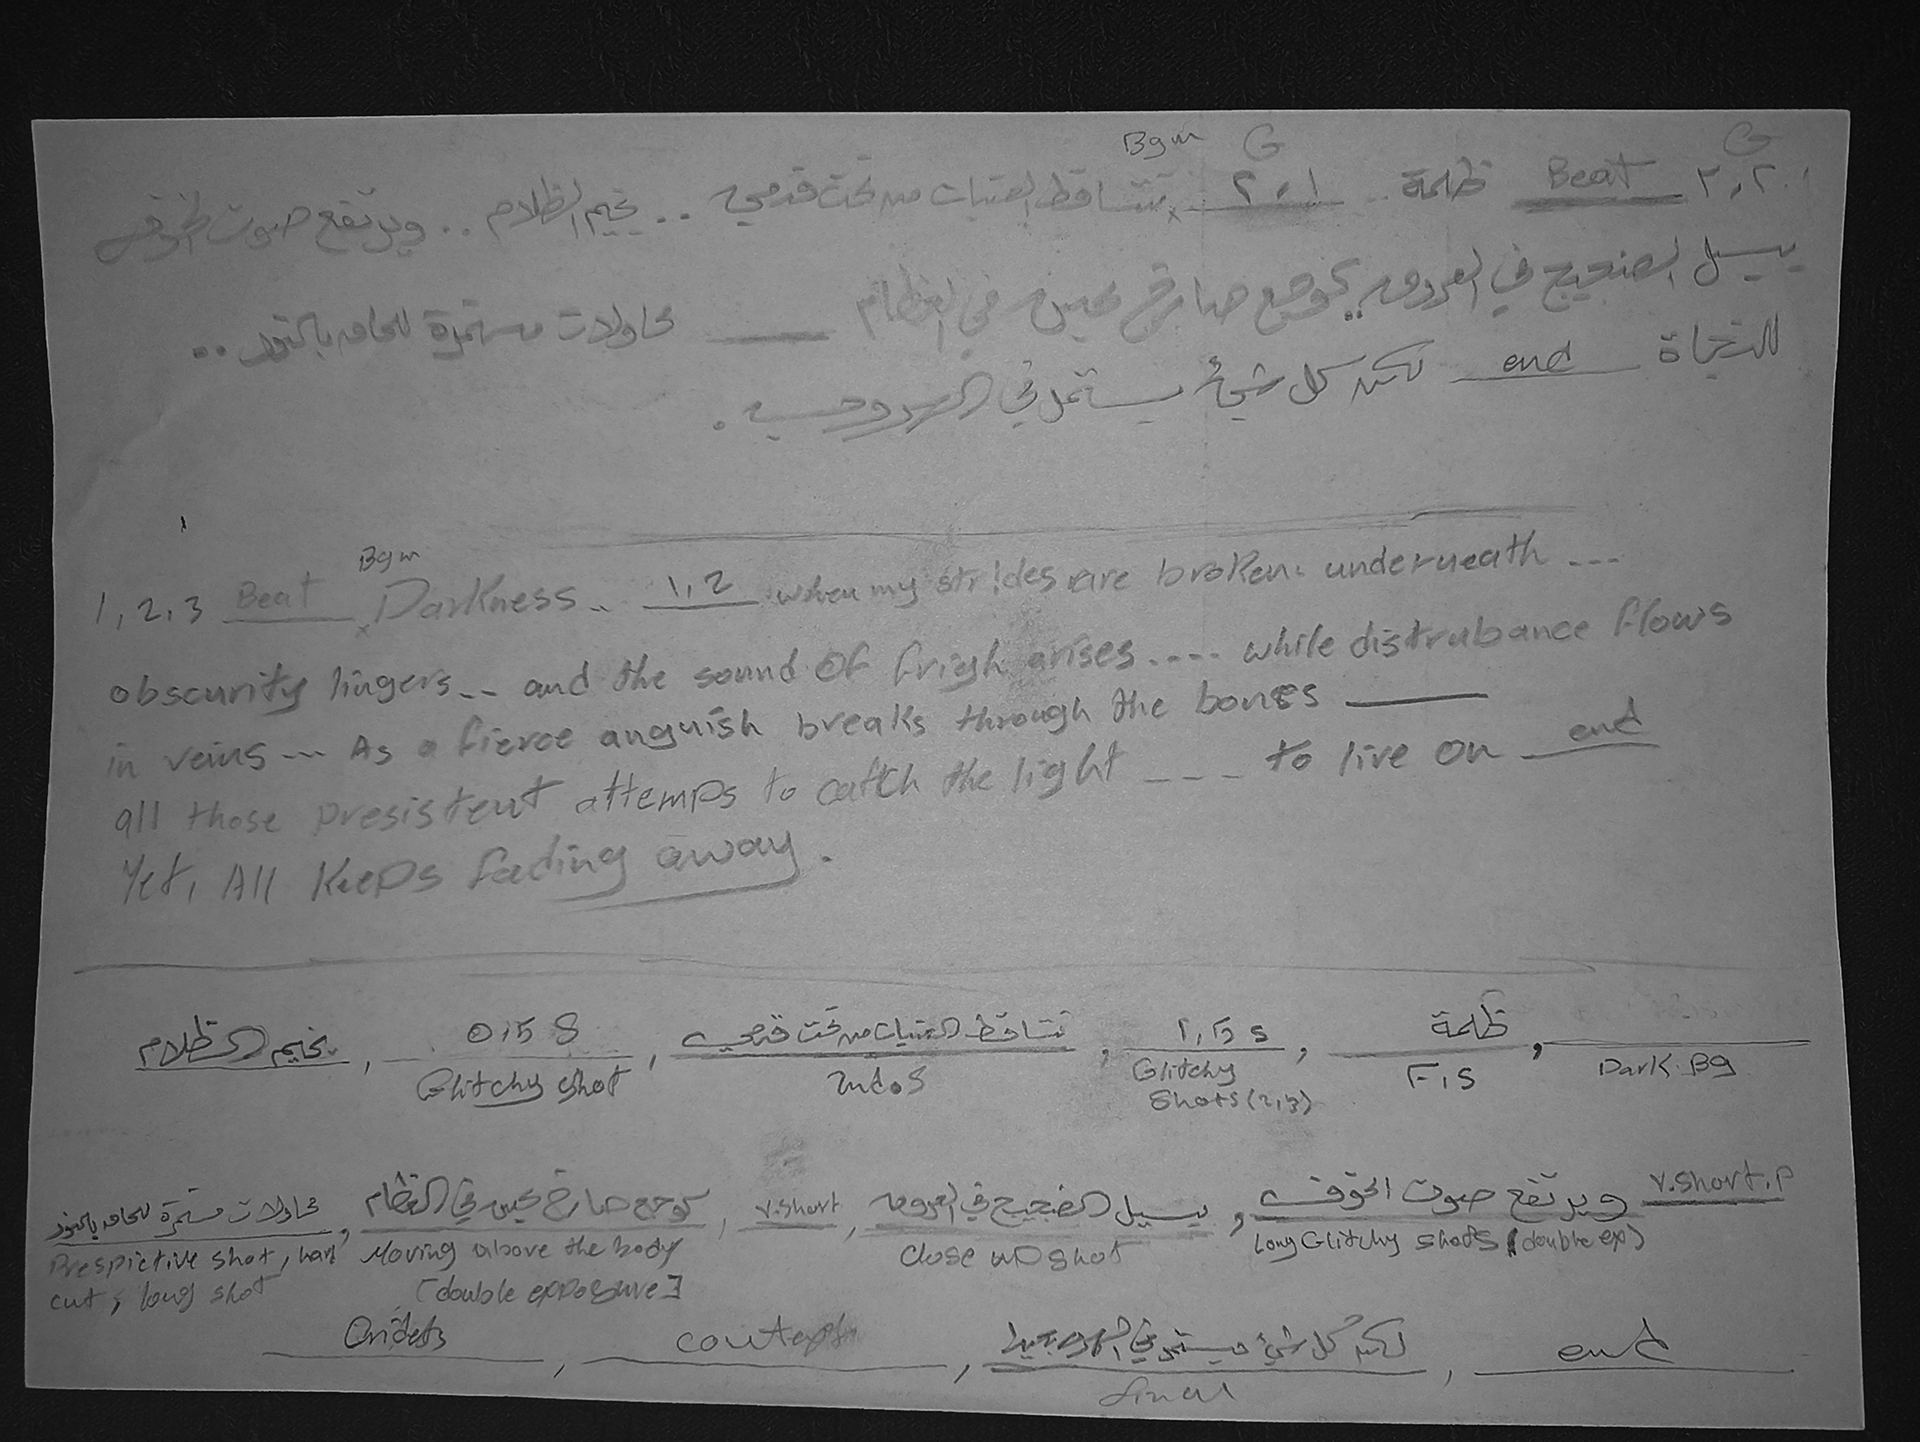 Bgm G G
٣،٢،١ Beat ظلمة .. ٢،١ تتساقط العتبات من تحت قدمي .. يخيم الظلام .. ويرتفع صوت الخوف
يسيل الضجيج في العروق .. كوجع صارخ في العظام ــــ محاولات مستمرة للحاق بالنور ..
للنجاة end لكن كل شيء يستمر في الهروب .
Bgm
1, 2, 3 Beat x Darkness .. 1, 2 when my strides are broken underneath ---
obscurity lingers -- and the sound of frigh arises .... while distrubance flows
in veins --- As a fierce anguish breaks through the bones ——
all those presistent attemps to catch the light --- to live on end
Yet, All Keeps fading away .
Dark. Bg , ظلمة , 1,5 s , تتساقط العتبات من تحت قدمي , 0,5 S , يخيم الظلام
F.S Glitchy Glitchy shot
Shots (2,3)
v.short.p ويرتفع صوت الخوف , يسيل الضجيج في العروق , v.short , كوجع صارخ في العظام , محاولات مستمرة للحاق بالنور
Long Glitchy shots (double exp) close up shot Moving above the body Prespictive shot, hard
[double exposure] cut, long shot
end , لكن كل شيء يستمر في الهروب , context ,
final